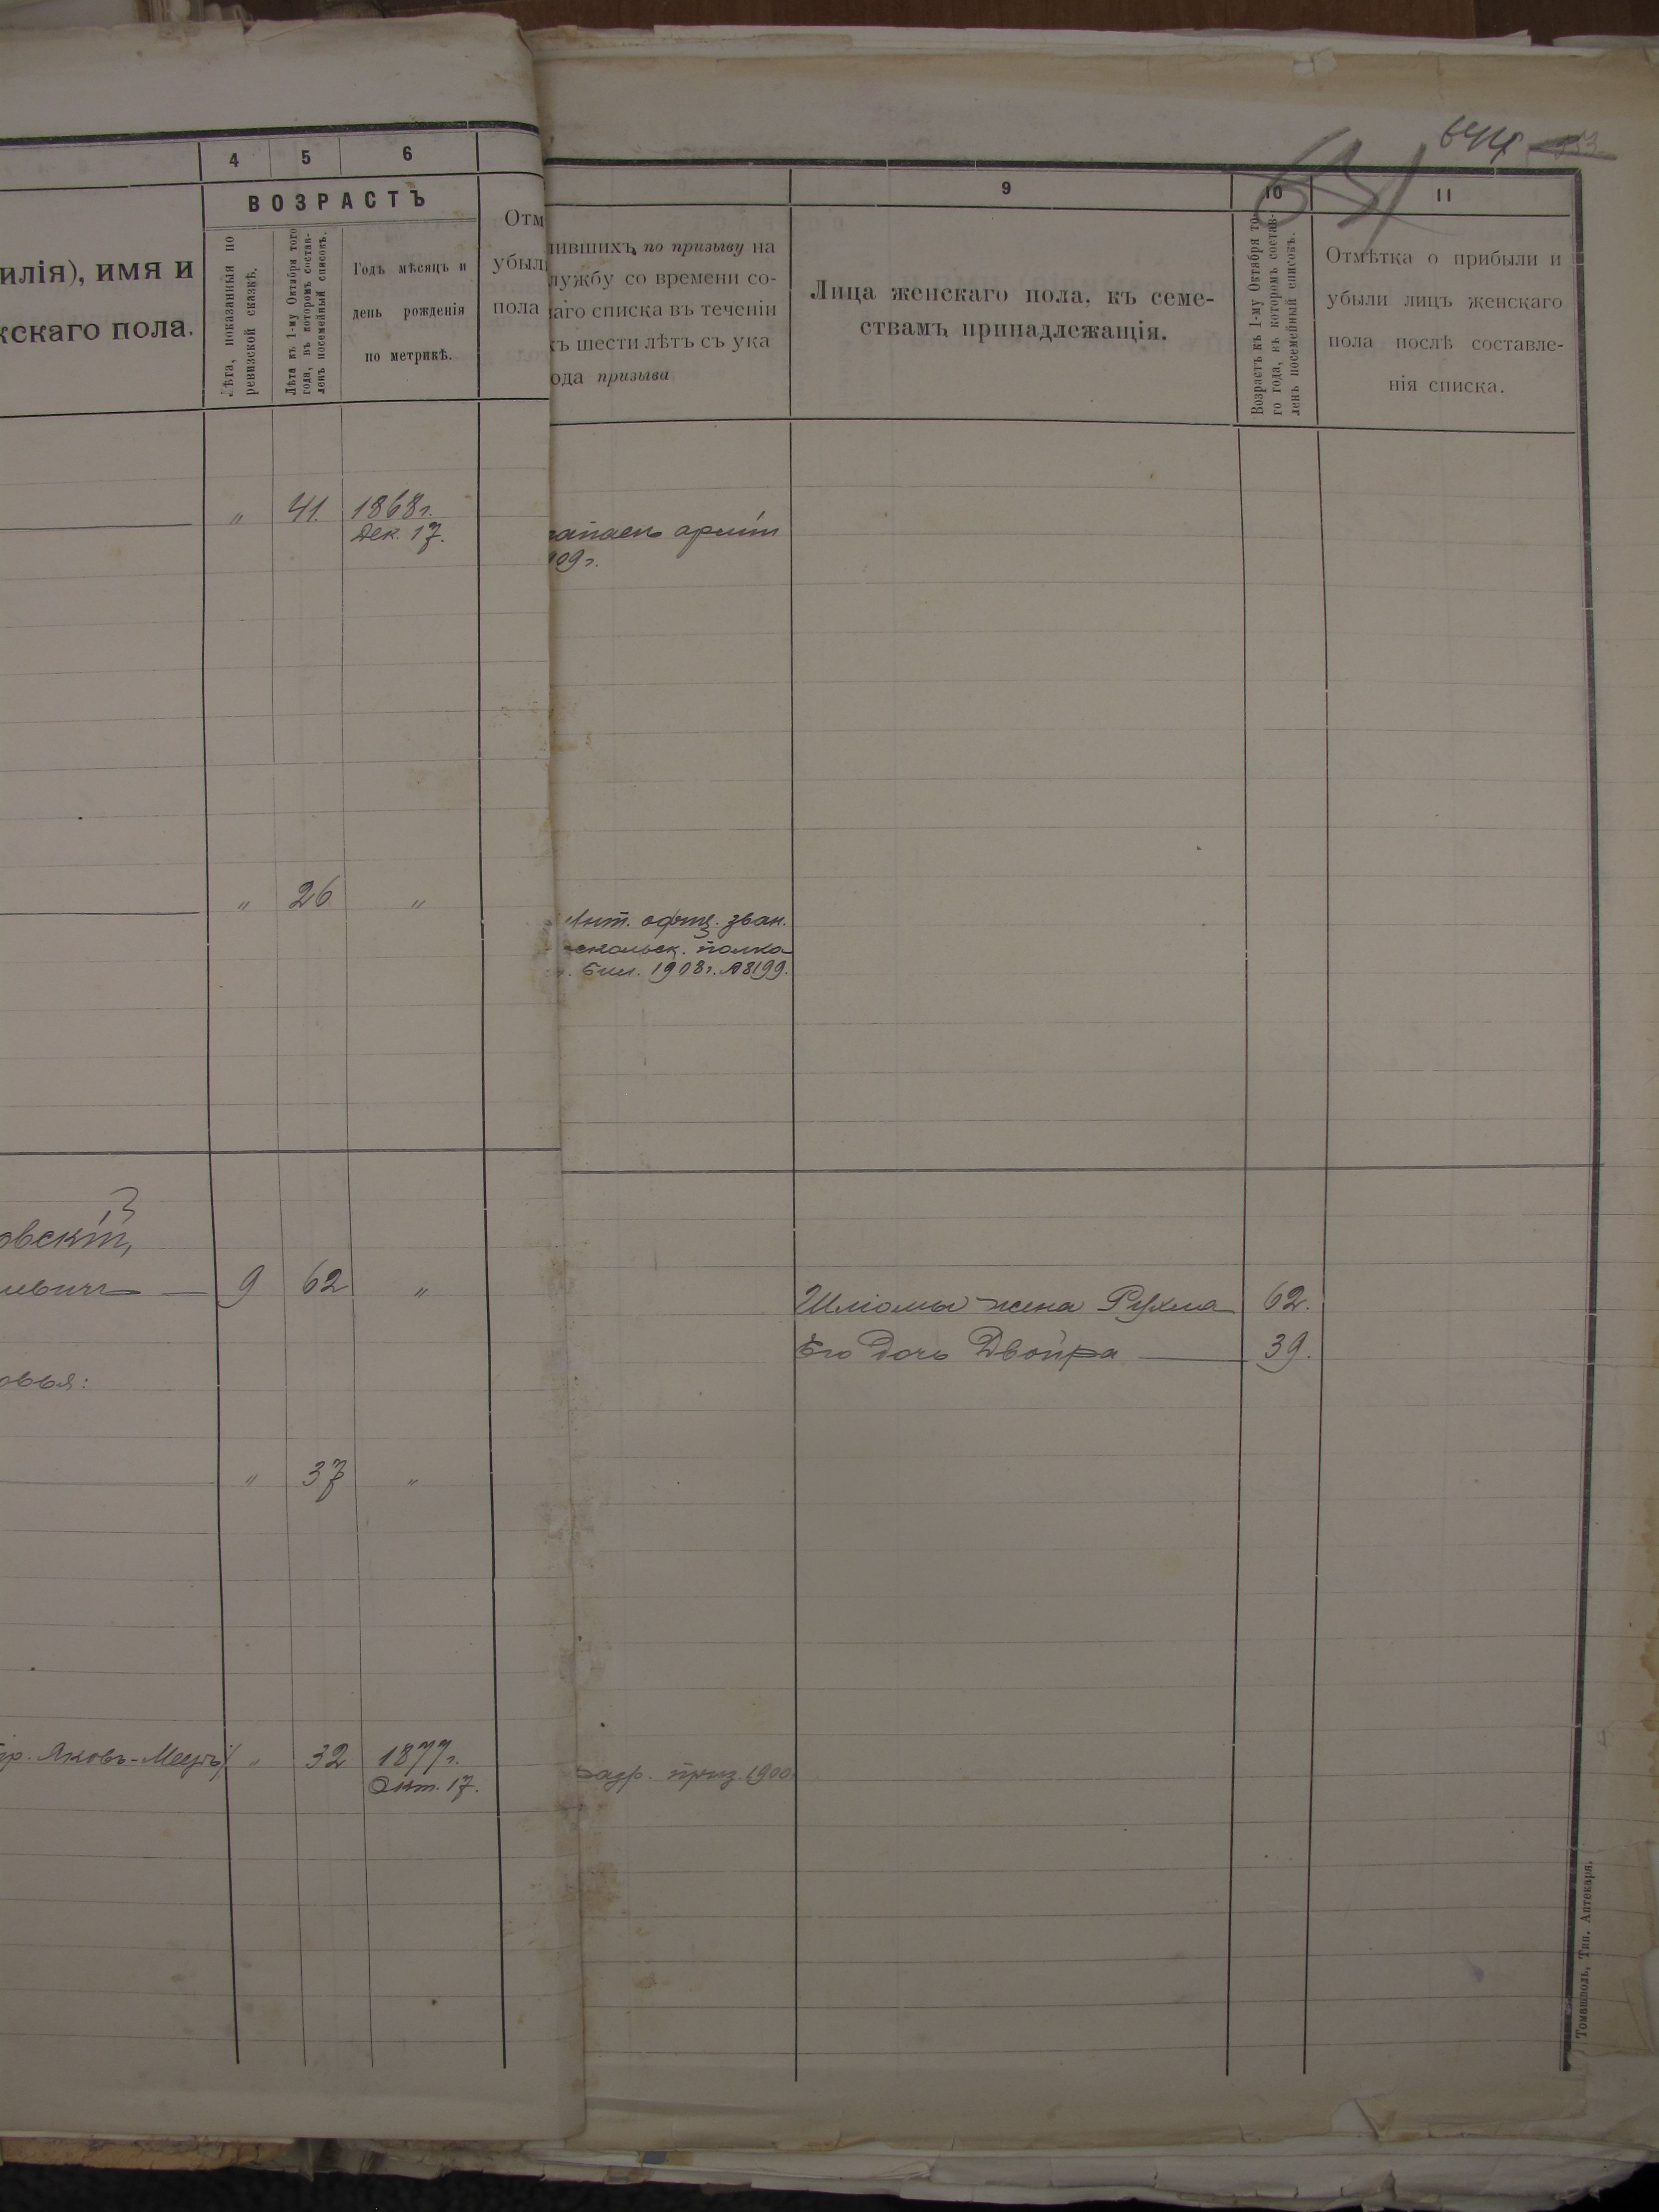 644
4 5 6
ВОЗРАСТЪ
илія), имя и
жскаго пола.
Лѣта, показанныя по
ревизской сказкѣ.
Лѣта къ 1-му Октября того
года, въ которомъ состав-
ленъ посемейный списокъ.
Годъ мѣсяцъ и
день рожденія
по метрикѣ.
Отм
убыл
пола
" 41. 1868 г.
Дек. 17.
" 26 "
овскій,
9 62 "
овья:
" 37 "
пр. Яковъ-Меер " 32 1877 г.
Окт. 17.
9 10 11
ивших по призыву на
лужбу со времени со-
аго списка въ теченіи
хъ шести лѣтъ съ ука
ода призыва
Лица женскаго пола, къ семе-
ствамъ принадлежащія.
Возрастъ къ 1-му Октября то-
го года, въ которомъ состав-
ленъ посемейный списокъ.
Отмѣтка о прибыли и
убыли лицъ женскаго
пола послѣ составле-
нія списка.
запаснъ арміи
909 г.
Унт. офиц. зван.
полка
бил. 1908 г. № 8199.
Шліомы жена Рухля 62.
Его дочь Двойра 39.
разр. приз. 1900
Томашполь, Тип. Аптекаря.